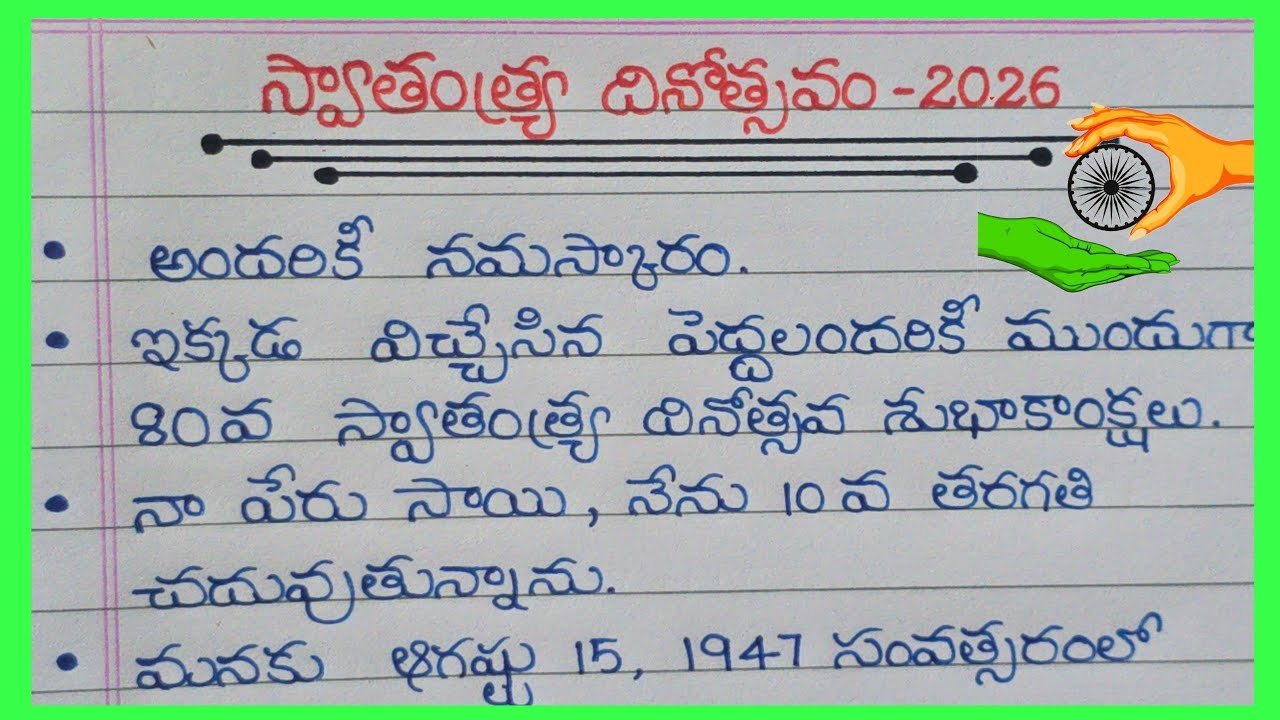 స్వాతంత్ర్య దినోత్సవం -2026
• అందరికీ నమస్కారం.
• ఇక్కడ విచ్చేసిన పెద్దలందరికీ ముందుగా
80వ స్వాతంత్ర్య దినోత్సవ శుభాకాంక్షలు.
• నా పేరు సాయి, నేను 10వ తరగతి
చదువుతున్నాను.
• మనకు ఆగష్టు 15, 1947 సంవత్సరంలో